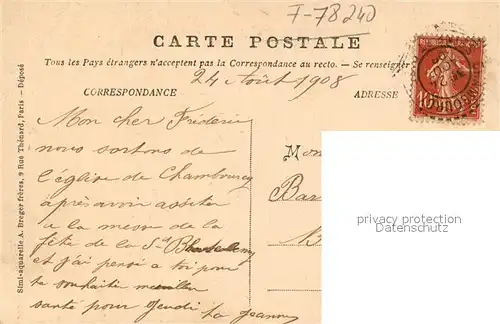 F-78240
CARTE POSTALE
Tous les Pays étrangers n'acceptent pas la Correspondance au recto. — Se renseigner
24 Août 1908
CORRESPONDANCE
ADRESSE
Mon cher Frédéric
nous sortons de
l'église de Chambourcy
après avoir assister
a la messe de la
fête de la St Barthelemy
et j'ai pensé a toi pour
te souhaité meilleur
santé pour Jeudi ta Jeanne
Simi-aquarelle A. Breger frères, 9 Rue Thénard, Paris. — Déposé
10
Mon
Bar
privacy protection
Datenschutz